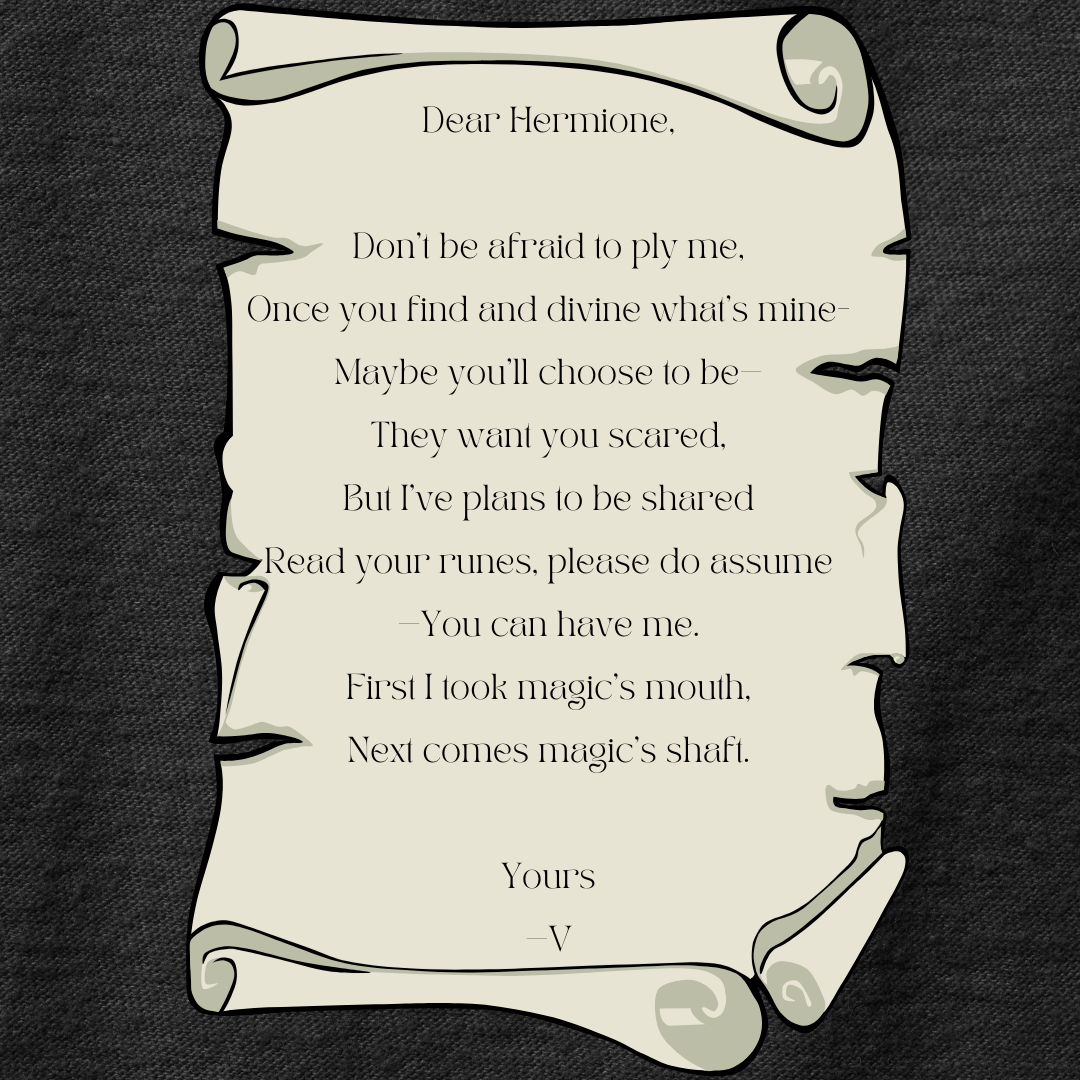 Dear Hermione,
Don't be afraid to ply me,
Once you find and divine what's mine-
Maybe you'll choose to be—
They want you scared,
But I've plans to be shared
Read your runes, please do assume
—You can have me.
First I took magic's mouth,
Next comes magic's shaft.
Yours
—V